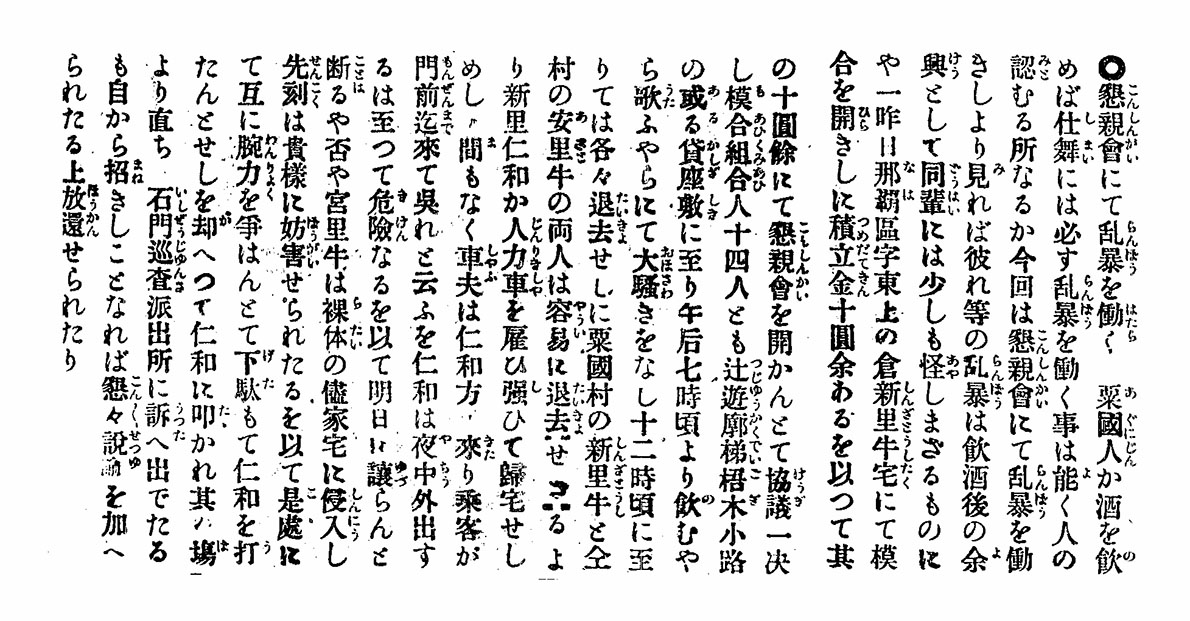 ◎懇親會にて乱暴を働く　粟國人か酒を飲
めば仕舞には必す乱暴を働く事は能く人の
認むる所なるか今回は懇親會にて乱暴を働
きしより見れば彼れ等の乱暴は飲酒後の余
興として同輩には少しも怪しまざるものに
や一昨日那覇區字東上の倉新里牛宅にて模
合を開きしに積立金十圓余わるを以つて其
の十圓餘にて懇親會を開かんとて協議一决
し模合組合人十四人とも辻遊廓梯梧木小路
の或る貸座敷に至り午后七時頃より飲むや
ら歌ふやらにて大騒きをなし十二時頃に至
りては各々退去せしに粟國村の新里牛と仝
村の安里牛の両人は容易に退去せ　るよ
り新里仁和か人力車を雇ひ强ひて歸宅せし
めし　間もなく車夫は仁和方　來り乘客が
門前迄來て吳れと云ふを仁和は夜中外出す
るは至つて危險なるを以て明日に讓らんと
断るや否や宮里牛は裸体の儘家宅に侵入し
先刻は貴樣に妨害せられたるを以て是處に
て互に腕力を爭はんとて下駄もて仁和を打
たんとせしを却へつて仁和に叩かれ其ノ塲
より直ち　石門巡査派出所に訴へ出でたる
も自から招きしことなれば懇々説諭を加へ
られたる上放還せられたり